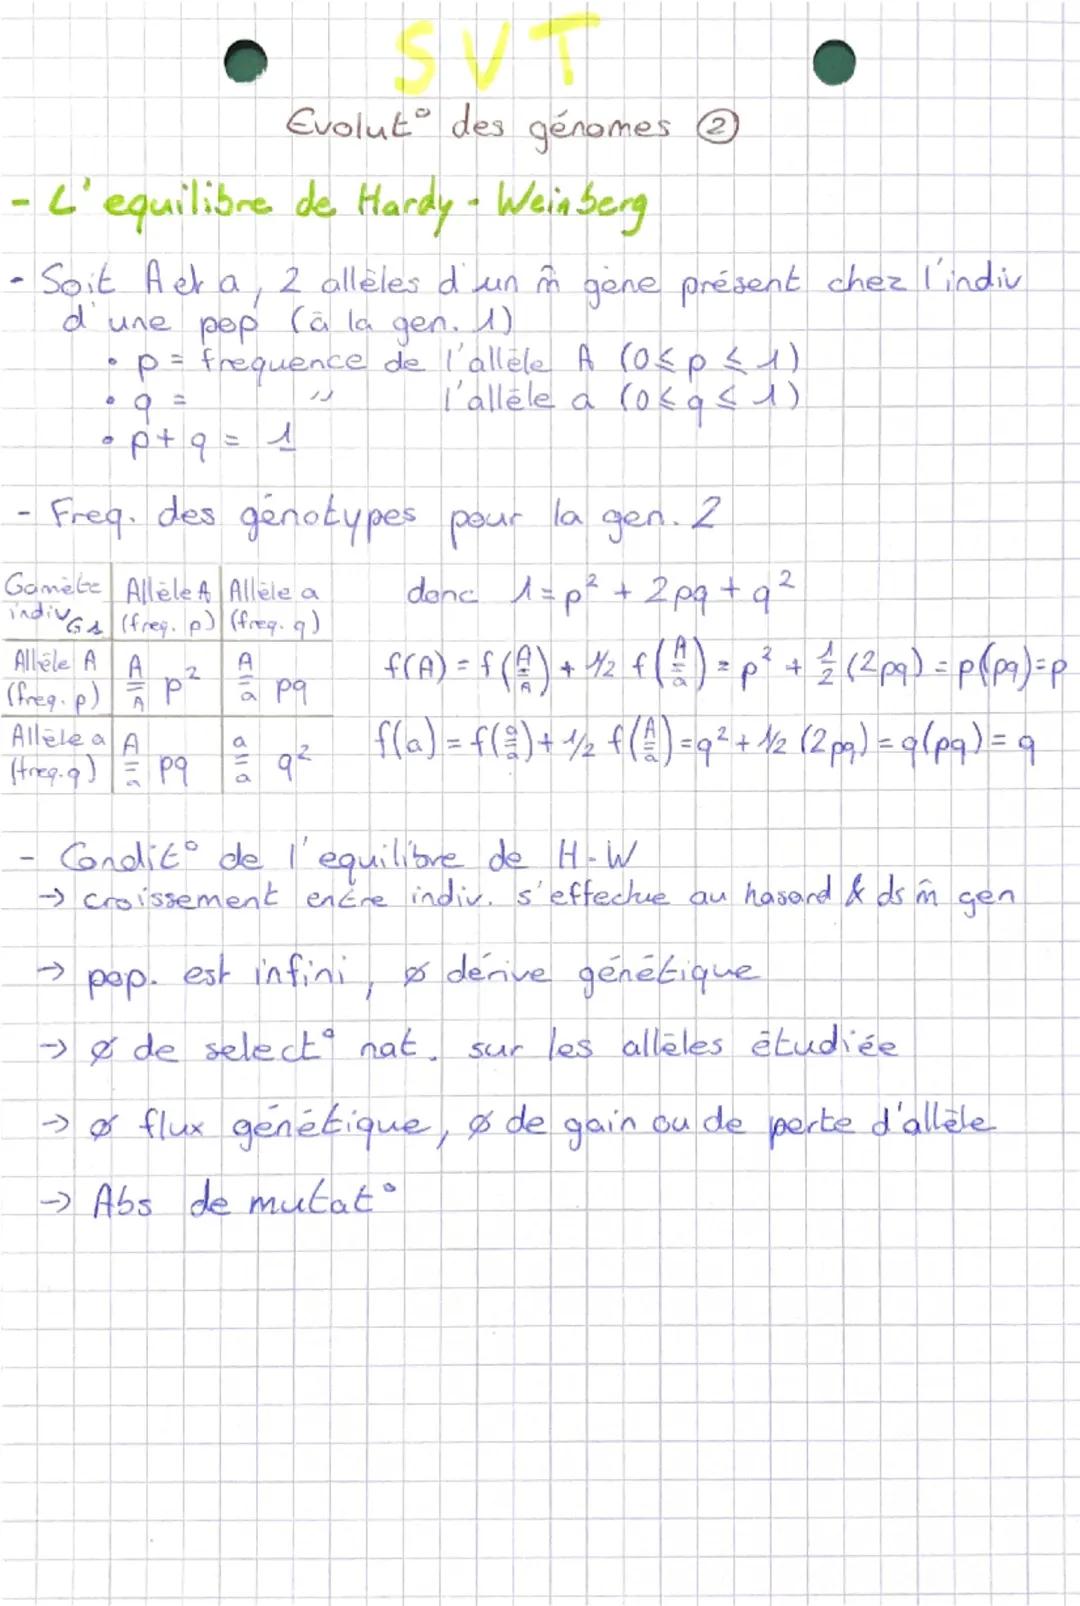 SVT
Evolut° des génomes ②
- L'equilibre de Hardy - Weinberg
- Soit A et a, 2 allèles d'un m̂ gène présent chez l'indiv
d'une pop (à la gen. 1)
• p = frequence de l'allèle A (0≤p≤1)
• q = " l'allèle a (0≤q≤1)
• p+q = 1
- Freq. des génotypes pour la gen. 2
Gamète indiv G1 | Allèle A (freq. p) | Allèle a (freq. q)
Allèle A (freq. p) | A/A p² | A/a pq
Allèle a (freq. q) | A/a pq | a/a q²
donc 1 = p² + 2pq + q²
f(A) = f(A/A) + 1/2 f(A/a) = p² + 1/2 (2pq) = p(pq)=p
f(a) = f(a/a) + 1/2 f(A/a) = q² + 1/2 (2pq) = q(pq) = q
- Condit° de l'equilibre de H-W
→ croissement entre indiv. s'effectue au hasard & ds m̂ gen
→ pop. est infini, ø dérive génétique
→ ø de select° nat. sur les allèles étudiée
→ ø flux génétique, ø de gain ou de perte d'allèle
→ Abs de mutat°